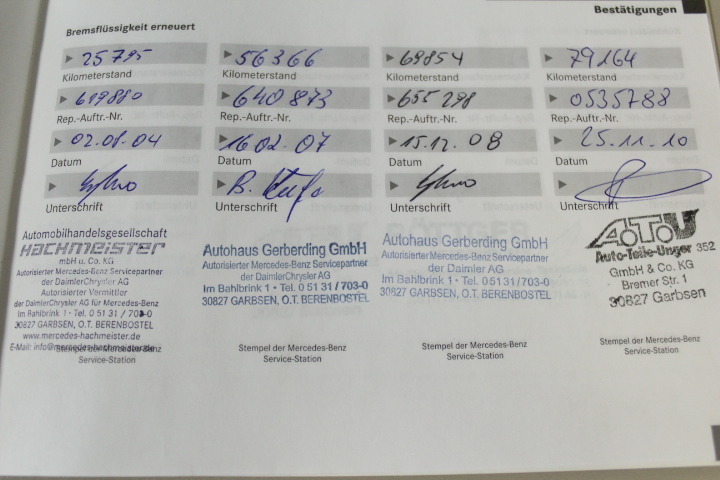 Bestätigungen
Bremsflüssigkeit erneuert
25795
Kilometerstand
619880
Rep.-Auftr.-Nr.
02.08.04
Datum
Unterschrift
Automobilhandelsgesellschaft
HACHMEISTER
mbH u. Co. KG
Autorisierter Mercedes-Benz Servicepartner
der DaimlerChrysler AG
Autorisierter Vermittler
der DaimlerChrysler AG für Mercedes-Benz
Im Bahlbrink 1 • Tel. 0 51 31 / 703-0
30827 GARBSEN, O.T. BERENBOSTEL
www.mercedes-hachmeister.de
E-Mail: info@mercedes-hachmeister.de
Stempel der Mercedes-Benz
Service-Station
56366
Kilometerstand
640873
Rep.-Auftr.-Nr.
16 02. 07
Datum
Unterschrift
Autohaus Gerberding GmbH
Autorisierter Mercedes-Benz Servicepartner
der DaimlerChrysler AG
Im Bahlbrink 1 • Tel. 0 51 31 / 703-0
30827 GARBSEN, O.T. BERENBOSTEL
Stempel der Mercedes-Benz
Service-Station
69854
Kilometerstand
655298
Rep.-Auftr.-Nr.
15.12. 08
Datum
Unterschrift
Autohaus Gerberding GmbH
Autorisierter Mercedes-Benz Servicepartner
der Daimler AG
Im Bahlbrink 1 • Tel. 0 51 31 / 703-0
30827 GARBSEN, O.T. BERENBOSTEL
Stempel der Mercedes-Benz
Service-Station
79164
Kilometerstand
0535788
Rep.-Auftr.-Nr.
25.11.10
Datum
Unterschrift
A.T.U
Auto-Teile-Unger 352
GmbH & Co. KG
Bremer Str. 1
30827 Garbsen
Stempel der Mercedes-Benz
Service-Station